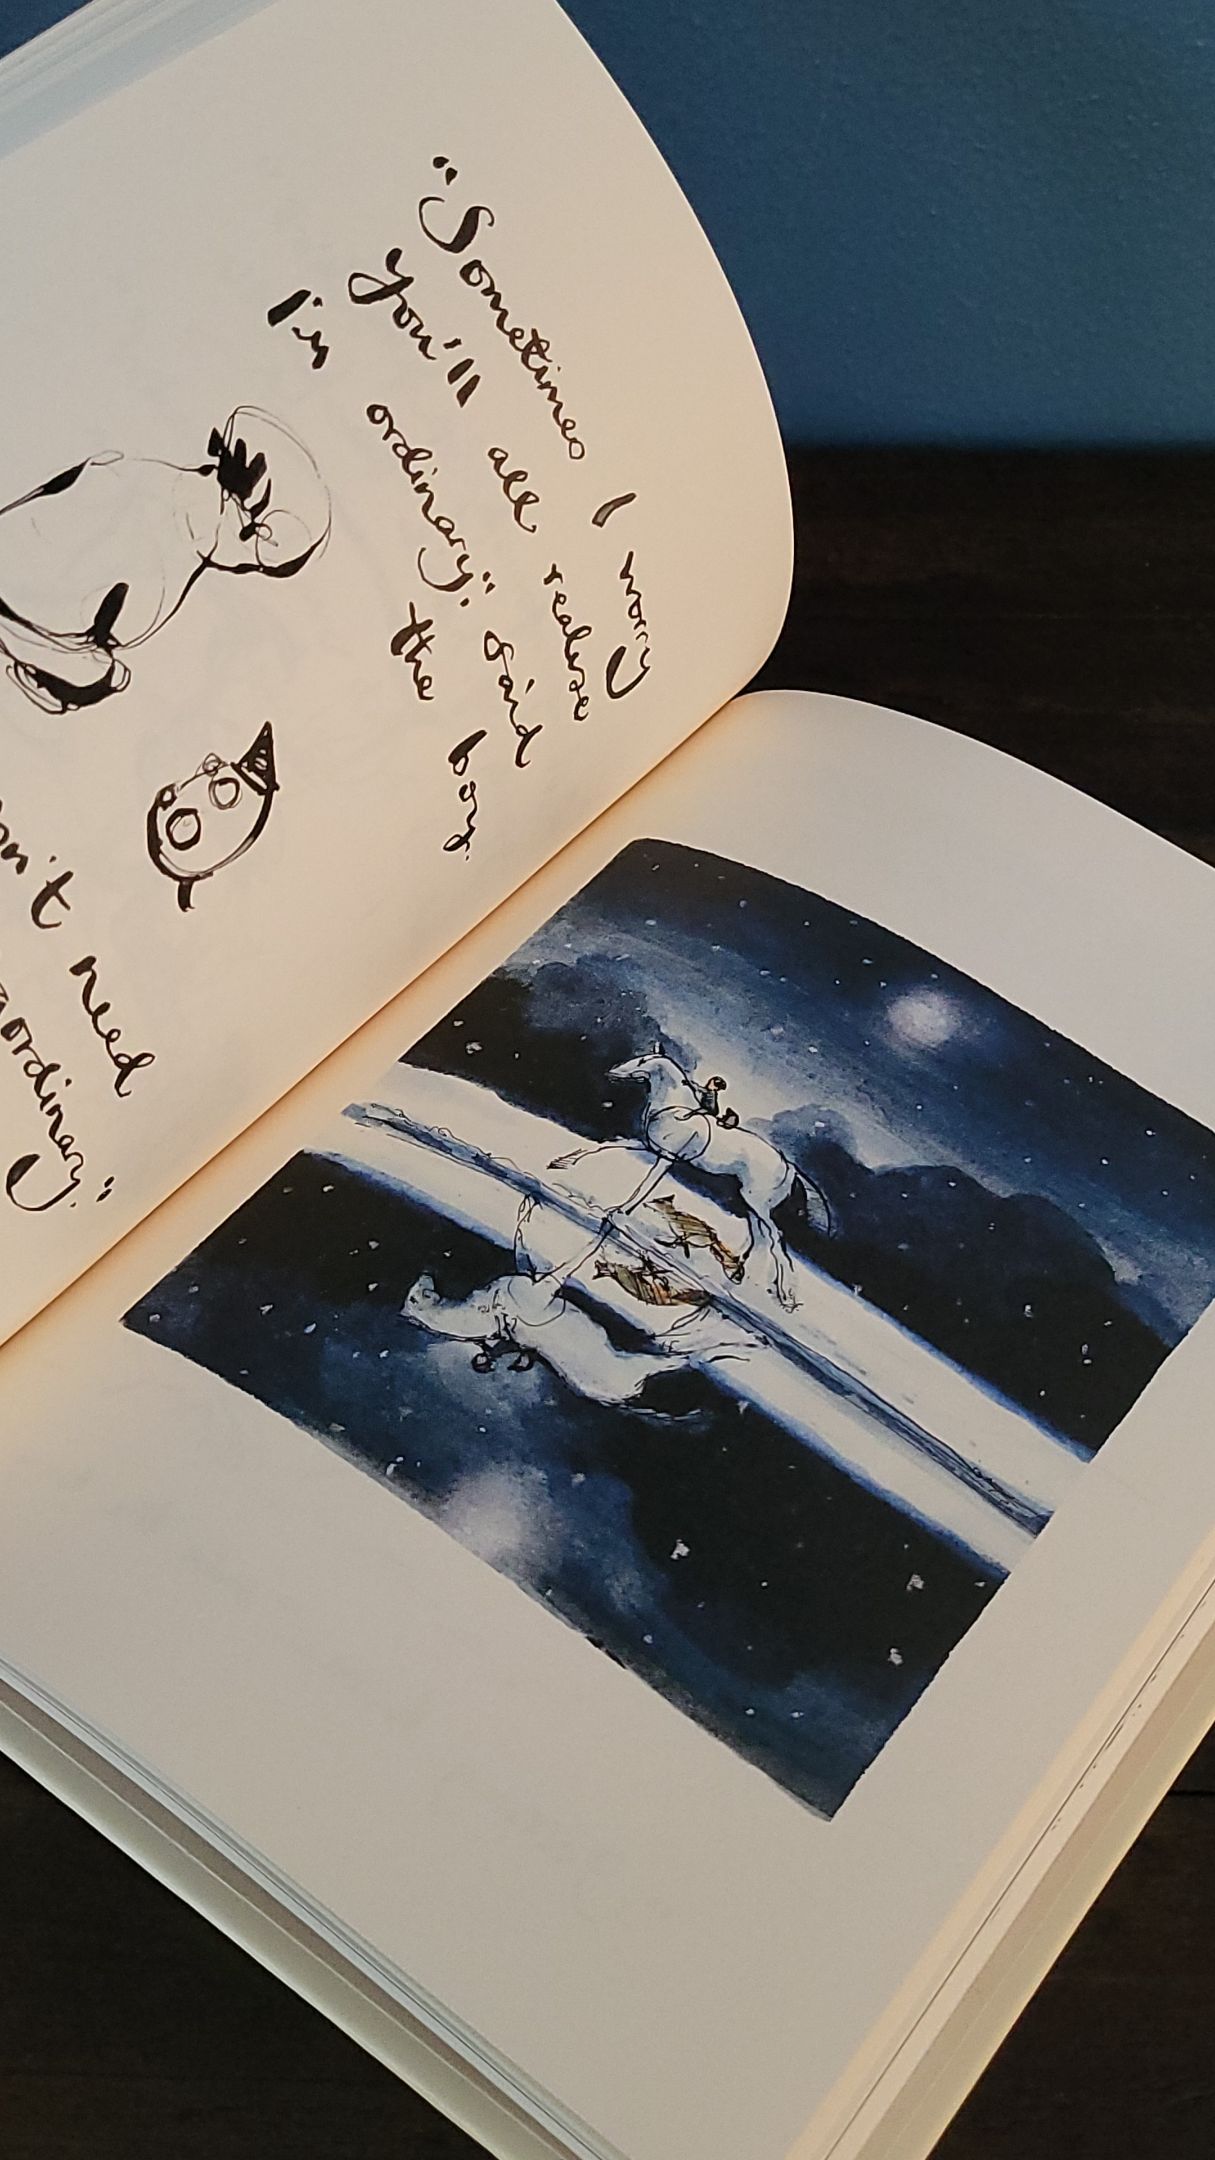 "Sometimes I worry
you'll all realise
I'm ordinary," said
the boy.
need
ordinary."